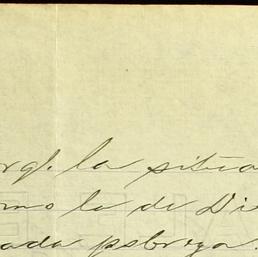 la situa
mo la de Di
ada pobreza.